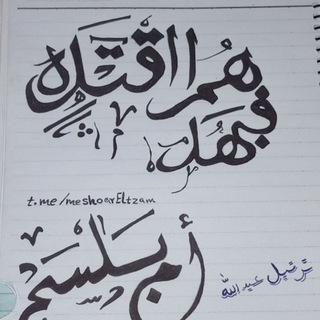 فبهداهم اقتده
t.me/meshoarEltzam
أم بلسم
ترتيل عبد الله